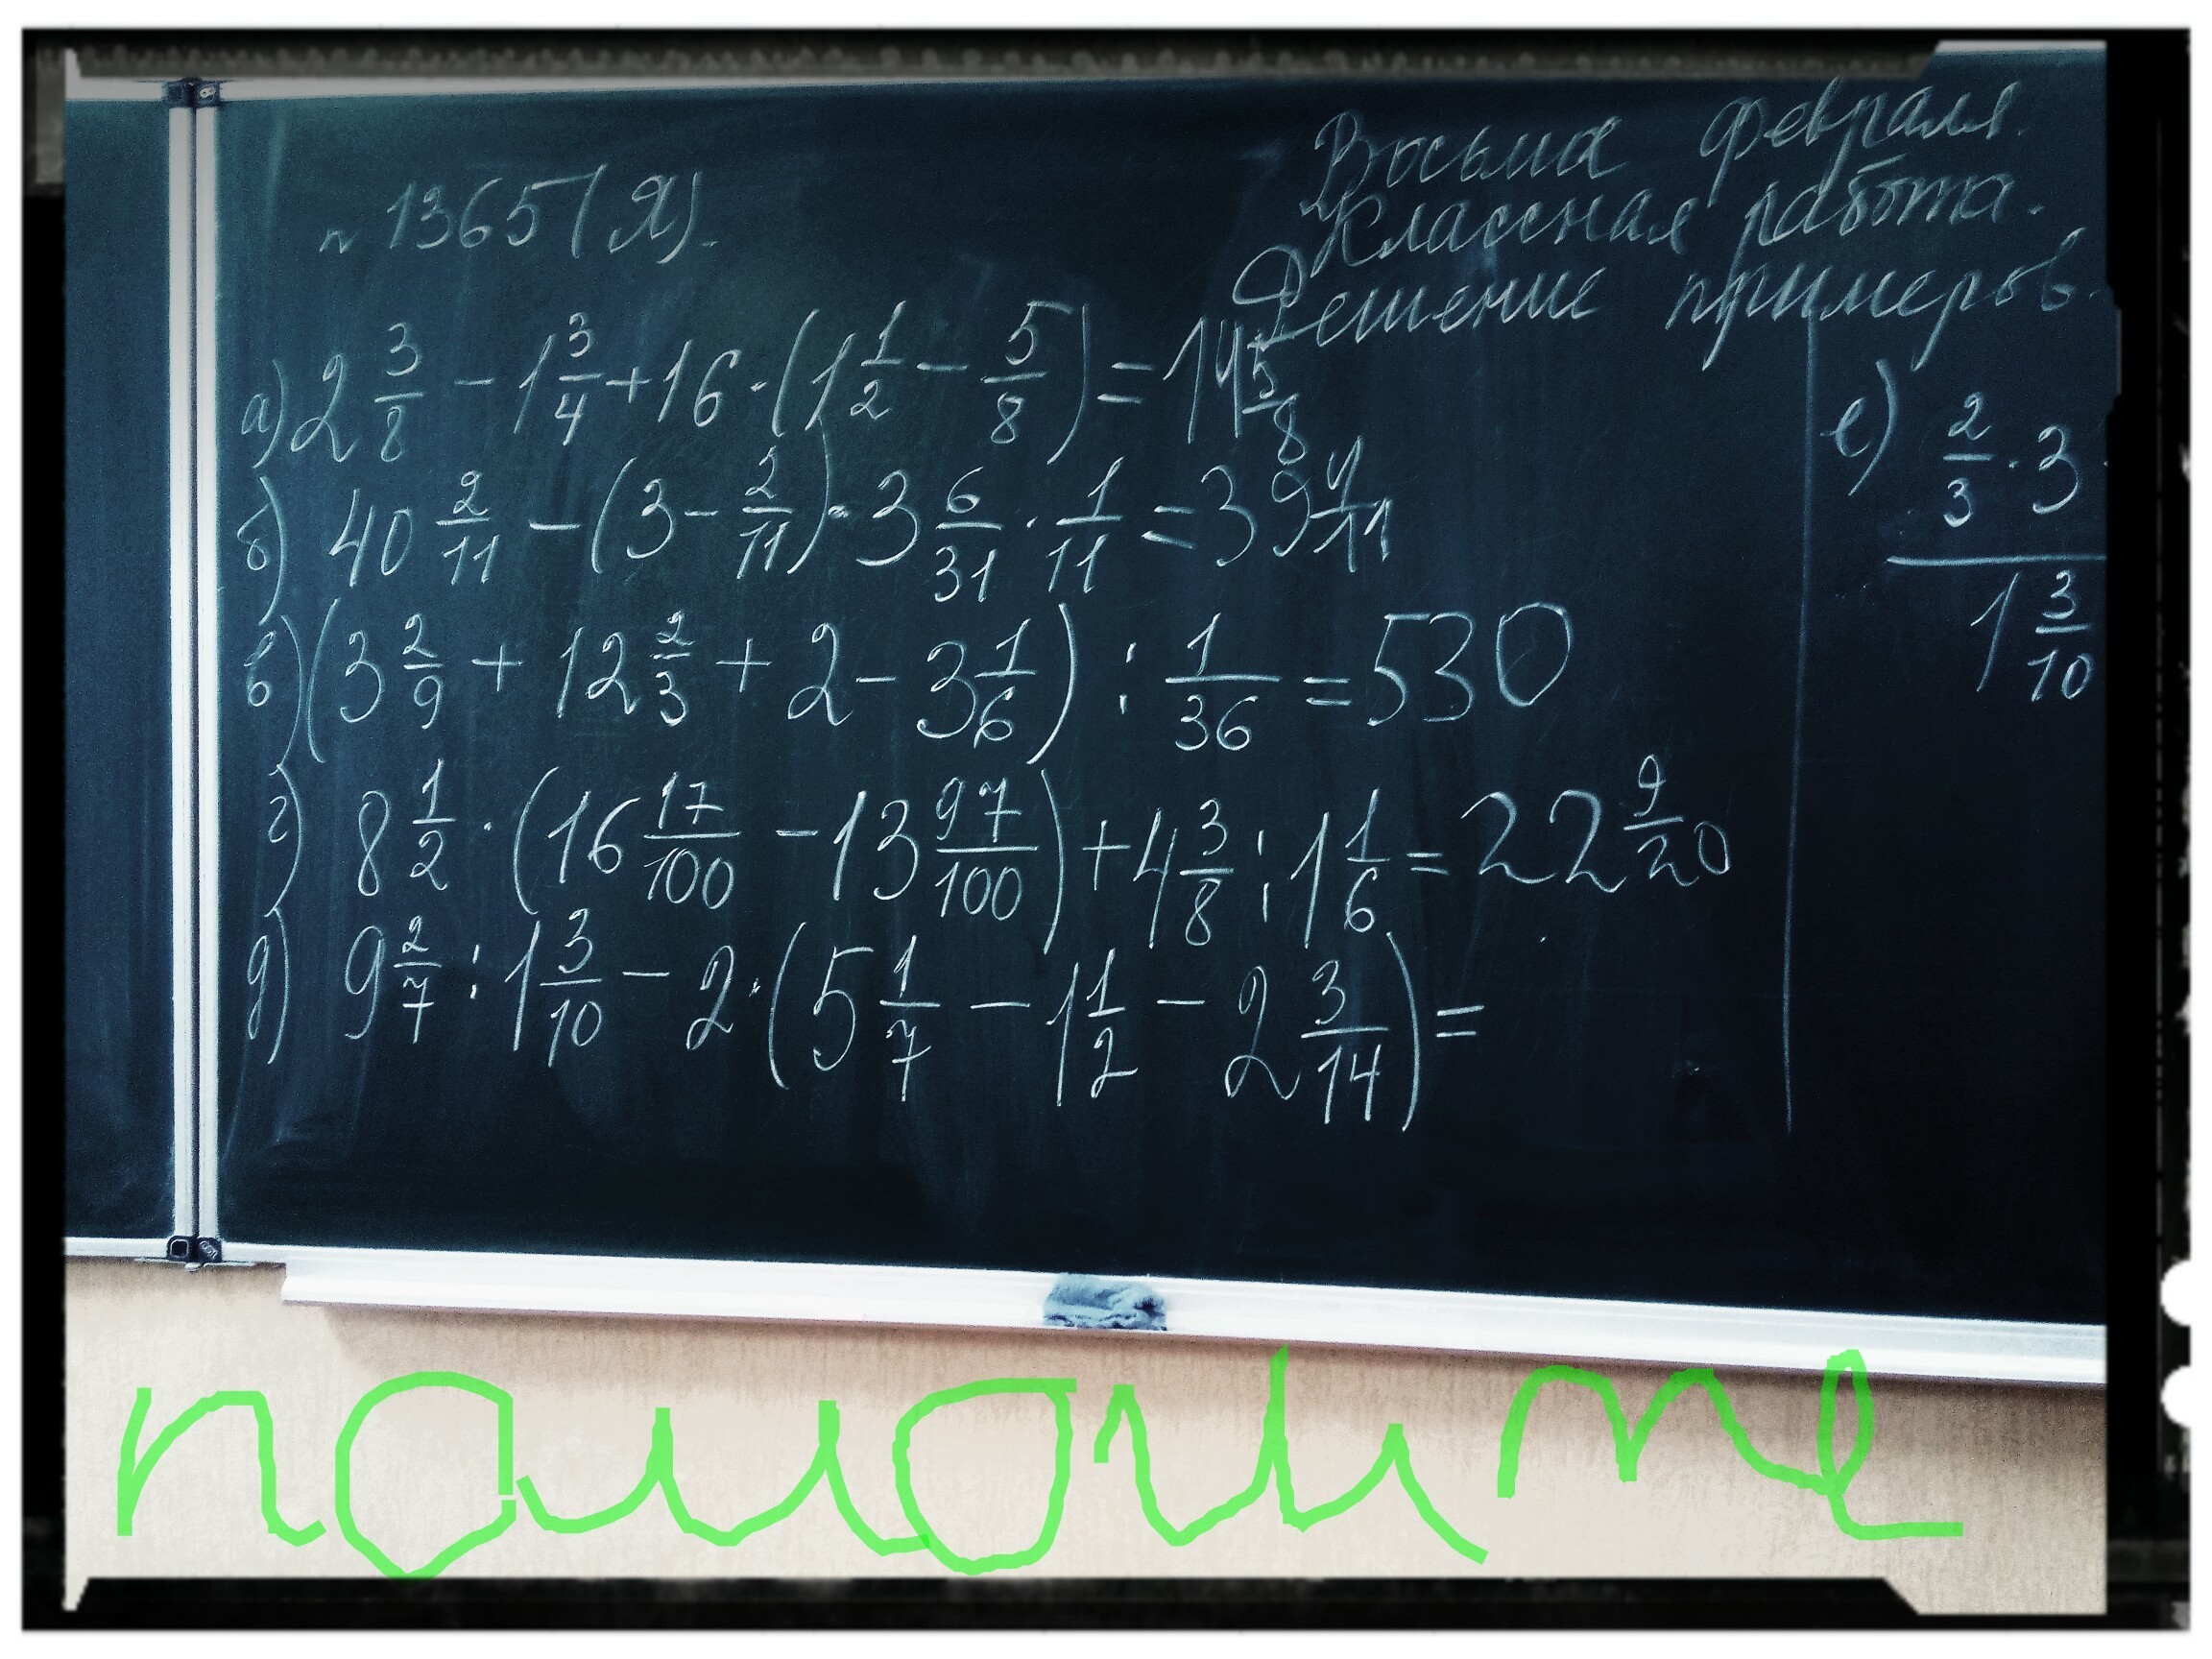 Восьмое февраля.
Классная работа.
Решение примеров.
№ 1365(Я).
а) 2 3/8 - 1 3/4 + 16 · (1 1/2 - 5/8) = 14 5/8
б) 40 2/11 - (3 - 2/11) · 3 6/31 · 1/11 = 39 4/11
в) (3 2/9 + 12 2/3 + 2 - 3 1/6) : 1/36 = 530
г) 8 1/2 · (16 17/100 - 13 97/100) + 4 3/8 : 1 1/6 = 22 9/20
д) 9 2/7 : 1 3/10 - 2 · (5 1/7 - 1 1/2 - 2 3/14) =
е) 2/3 · 3
1 3/10
помогите